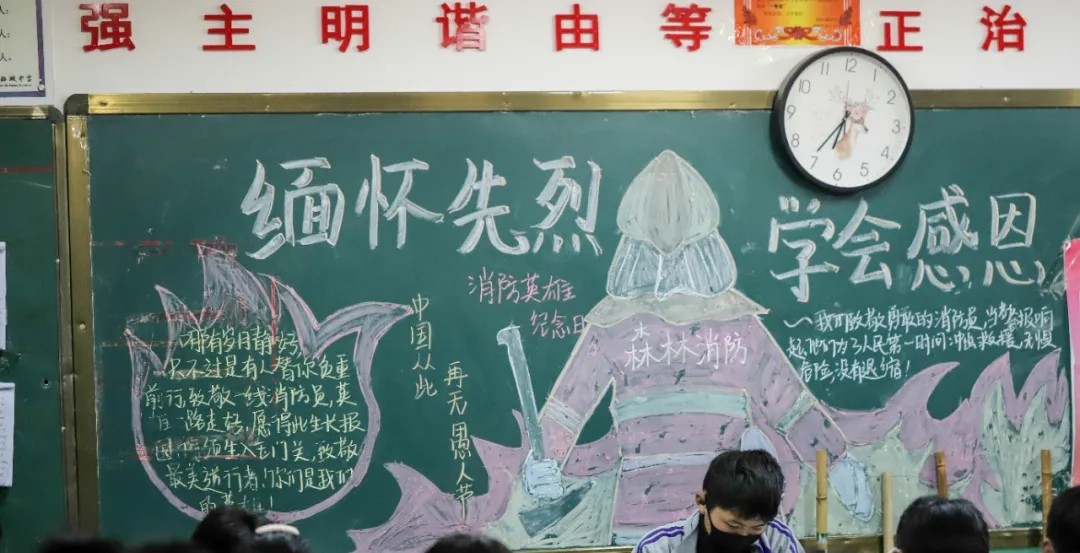 强 主 明 谐 由 等 正 治
缅怀先烈
学会感恩
消防英雄
纪念日
中国从此
再无愚人节
森林消防
哪有岁月静好,
只不过是有人替你负重
前行,致敬一线消防员,英
雄一路走好,愿得此生长报
国 须生入玉门关,致敬
最美逆行者!你们是我们
的英雄!
我们致敬勇敢的消防员,当警报响
起,他们为了人民第一时间冲锋救援,无惧
危险,没有退缩!
12 1 2 3 4 5 6 7 8 9 10 11